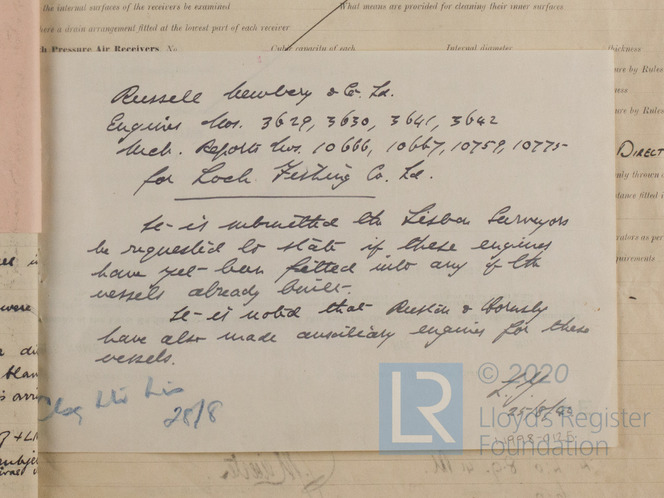 the internal surfaces of the receivers be examined What means are provided for cleaning their inner surfaces
there a drain arrangement fitted at the lowest part of each receiver
h Pressure Air Receivers, No. Cubic capacity of each Internal diameter thickness
Russell Newbery & Co. Ld.
Engines Nos. 3629, 3630, 3641, 3642
Mch. Reports Nos. 10666, 10667, 10759, 10775
for Loch Fishing Co. Ld.
It is submitted the Lisbon Surveyors
be requested to state if these engines
have yet been fitted into any of the
vessels already built.
It is noted that Ruston & Hornsby
have also made auxiliary engines for these
vessels.
28/8
© 2020
LR
Lloyd's Register
Foundation
ure by Rules
ure by Rules
DIRECT
only thrown
quirements
were